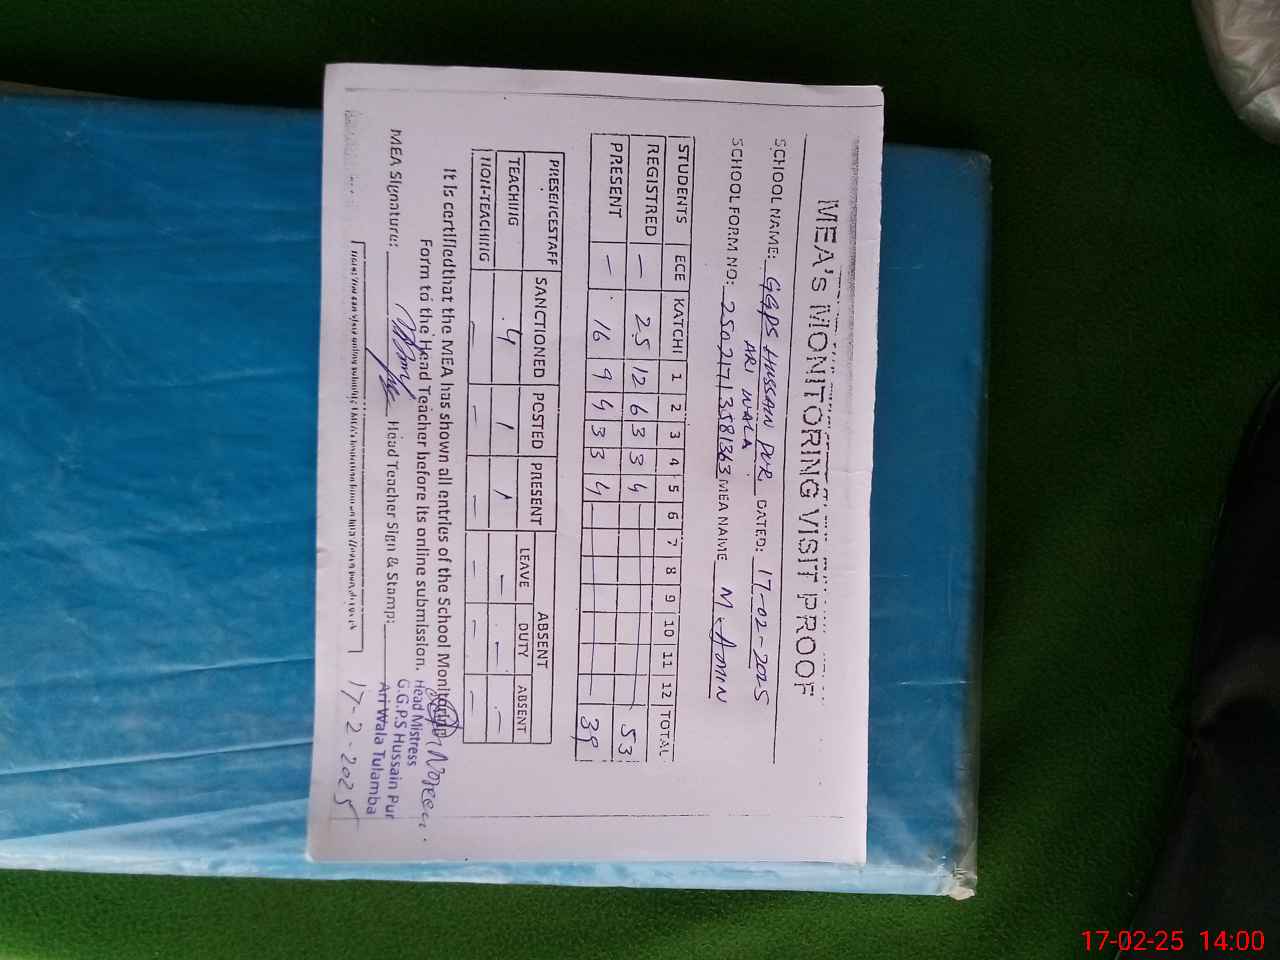 MEA's MONITORING VISIT PROOF
SCHOOL NAME: GGPS HUSSAIN PUR DATED: 17-02-2025
ARI WALA
SCHOOL FORM NO: 25021713581363 MEA NAME M. AMIN
STUDENTS ECE KATCHI 1 2 3 4 5 6 7 8 9 10 11 12 TOTAL
REGISTRED — 25 12 6 3 3 4 53
PRESENT — 16 9 4 3 3 4 39
PRESENCESTAFF SANCTIONED POSTED PRESENT ABSENT
LEAVE DUTY ABSENT
TEACHING 4 1 1 — — —
NON-TEACHING — — — — — —
It is certifiedthat the MEA has shown all entries of the School Monitoring
Form to the Head Teacher before its online submission.
MEA Signature: Head Teacher Sign & Stamp:
Head Mistress
G.G.P.S Hussain Pur
Ari Wala Tulamba
17-2-2025
17-02-25 14:00